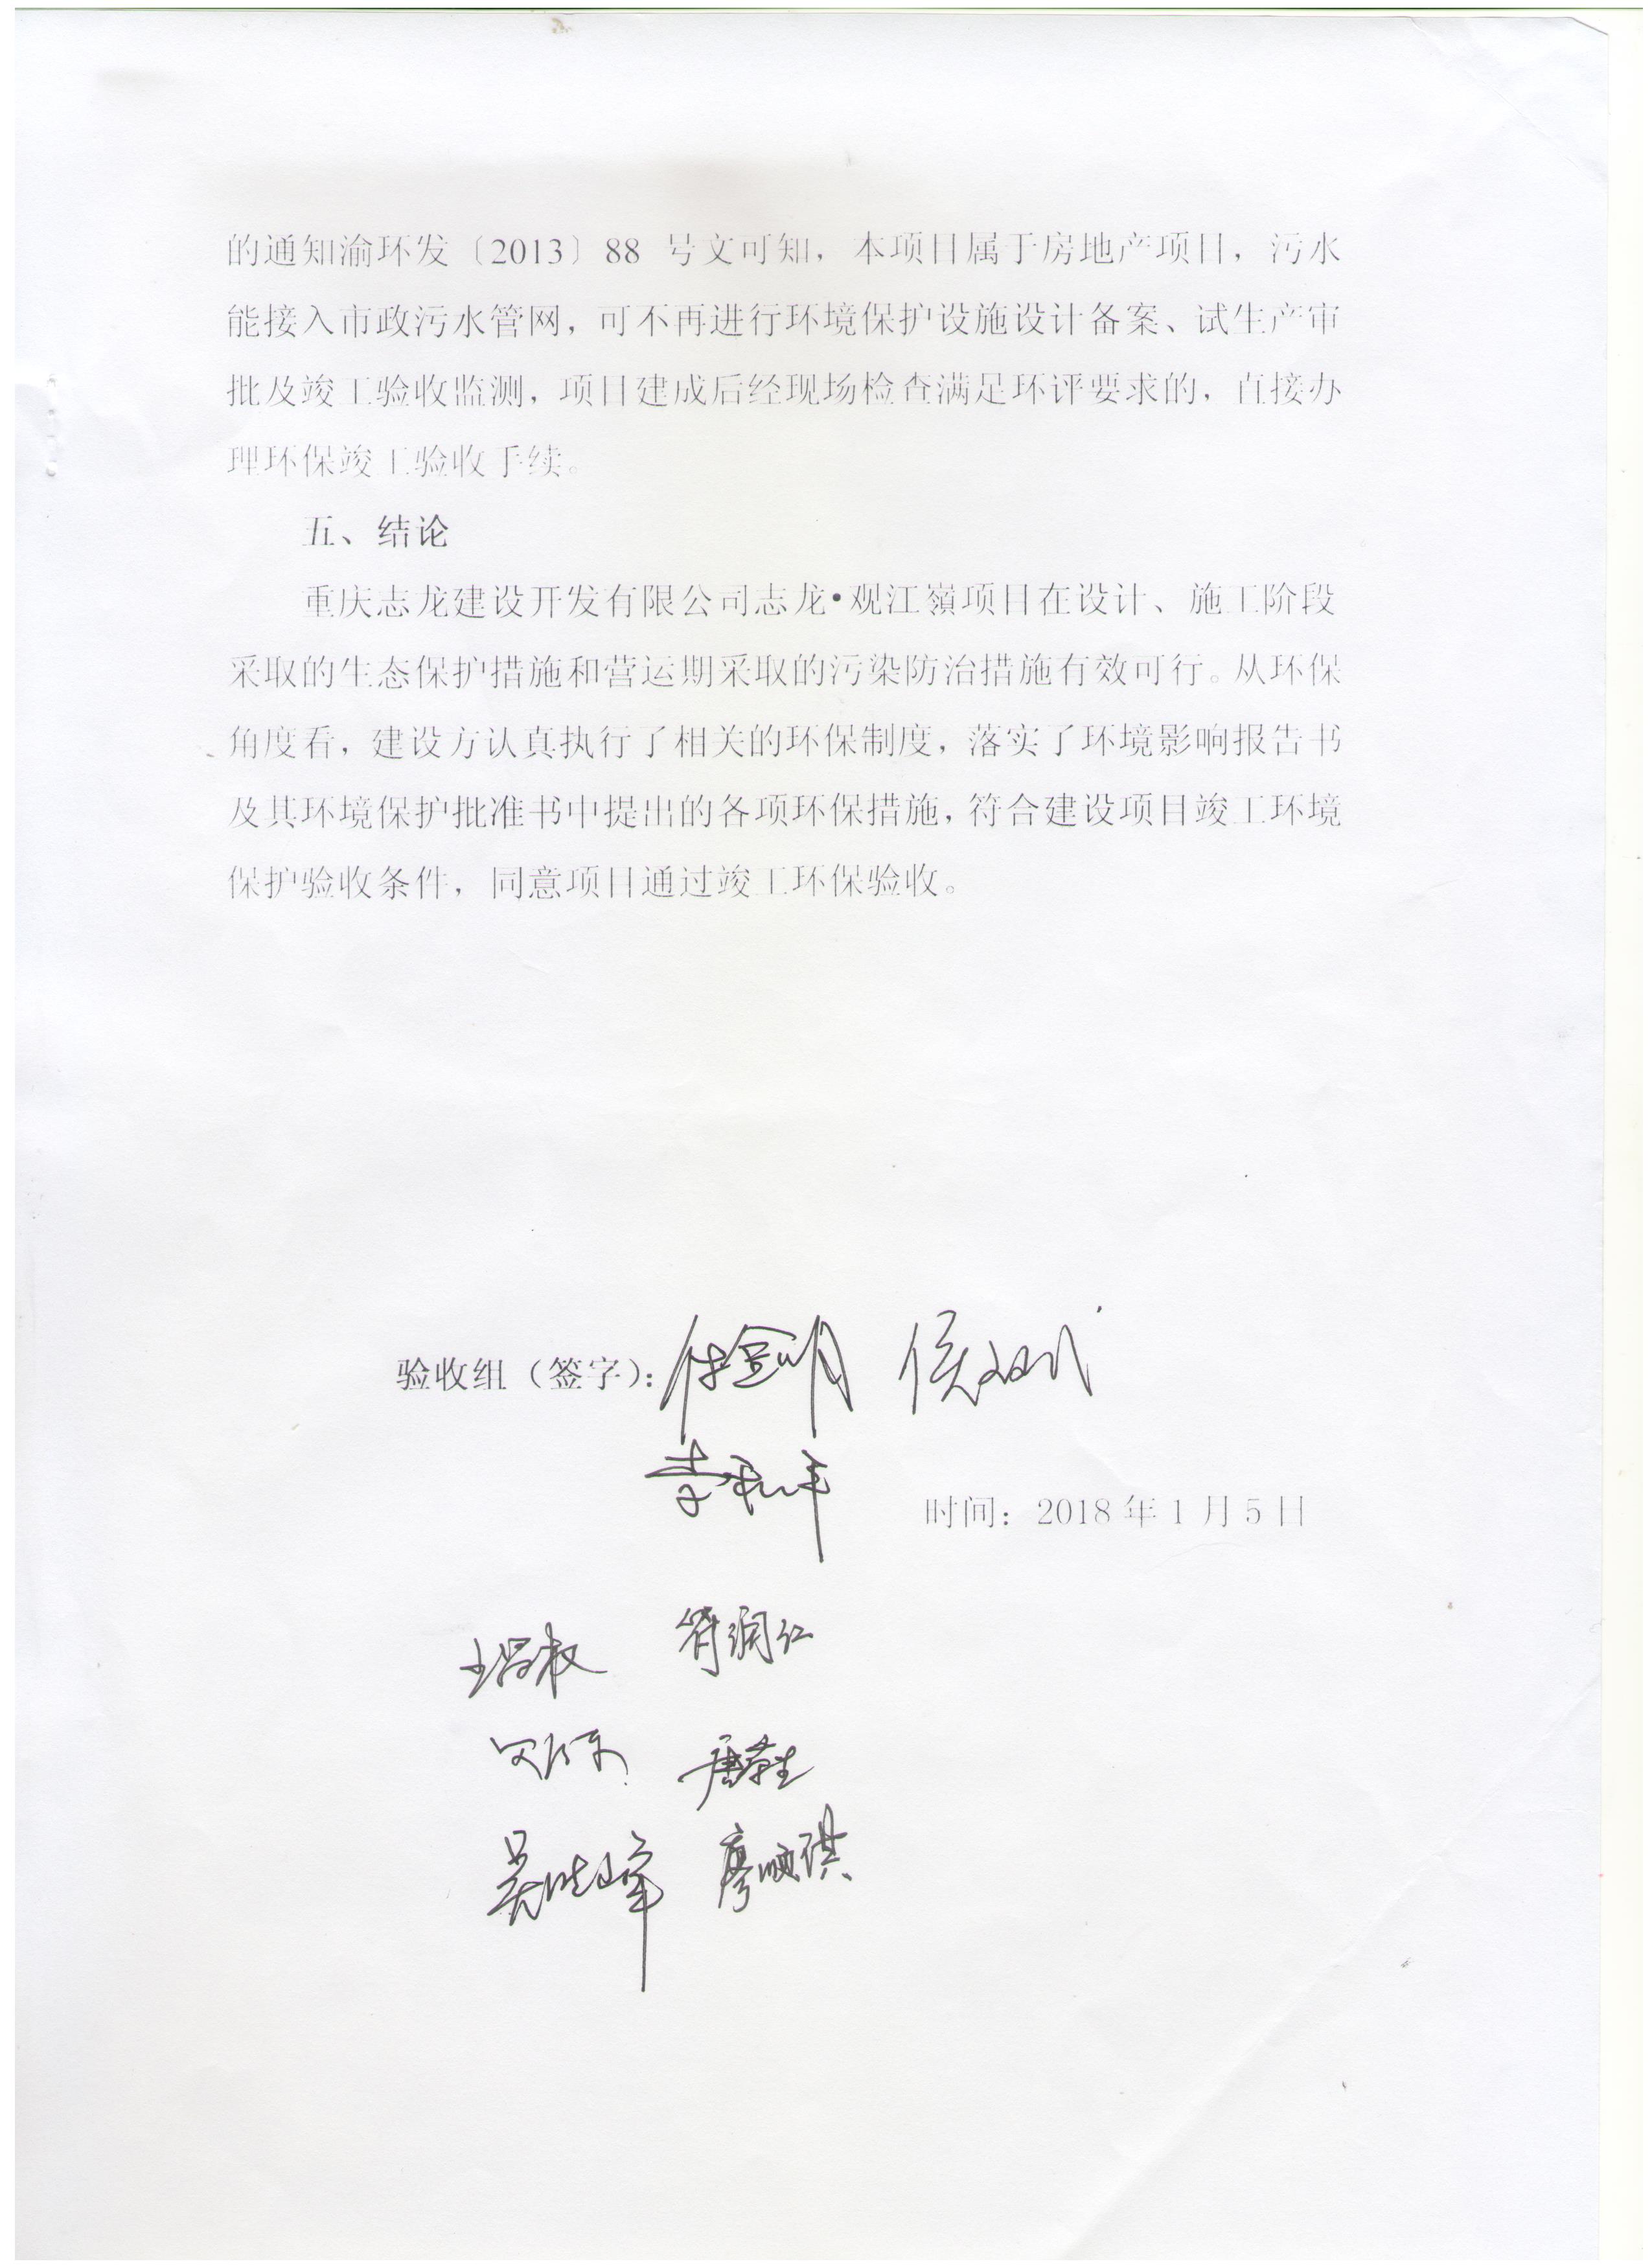 的通知渝环发〔2013〕88 号文可知，本项目属于房地产项目，污水
能接入市政污水管网，可不再进行环境保护设施设计备案、试生产审
批及竣工验收监测，项目建成后经现场检查满足环评要求的，直接办
理环保竣工验收手续。
五、结论
重庆志龙建设开发有限公司志龙•观江嶺项目在设计、施工阶段
采取的生态保护措施和营运期采取的污染防治措施有效可行。从环保
角度看，建设方认真执行了相关的环保制度，落实了环境影响报告书
及其环境保护批准书中提出的各项环保措施，符合建设项目竣工环境
保护验收条件，同意项目通过竣工环保验收。
验收组（签字）：
李和平
时间：2018 年 1 月 5 日
符润红